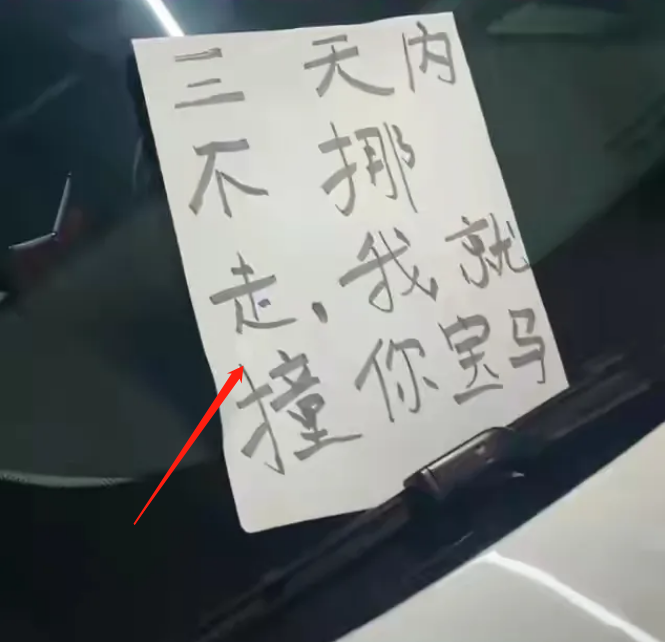 三天内
不挪
走,我就
撞你宝马